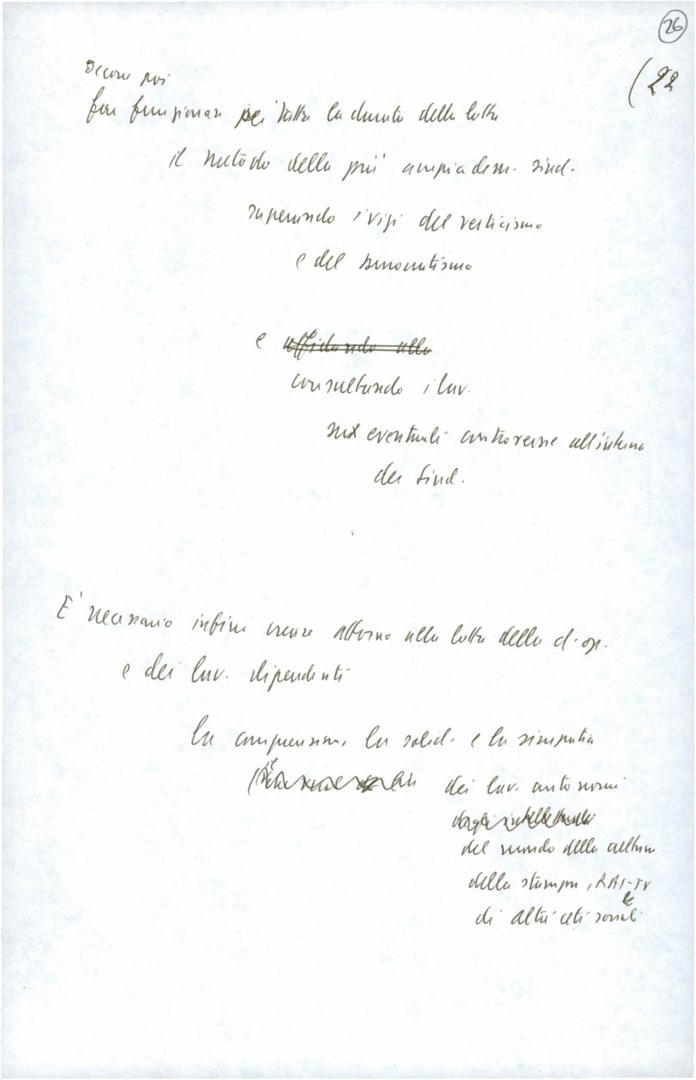 26
(22
Occorre poi
far funzionare per tutta la durata della lotta
il metodo della più ampia dem. sind.
superando i vizi del verticismo
e del
e affidando alla
consultando i lav.
su eventuali controversie all'interno
dei Sind.
E' necessario infine creare attorno alla lotta della cl. op.
e dei lav. dipendenti
la comprensione, la solid. e la simpatia
dei lav. autonomi
degli intellettuali
del mondo della cultura
della stampa, RAI-TV
di altri ceti sociali